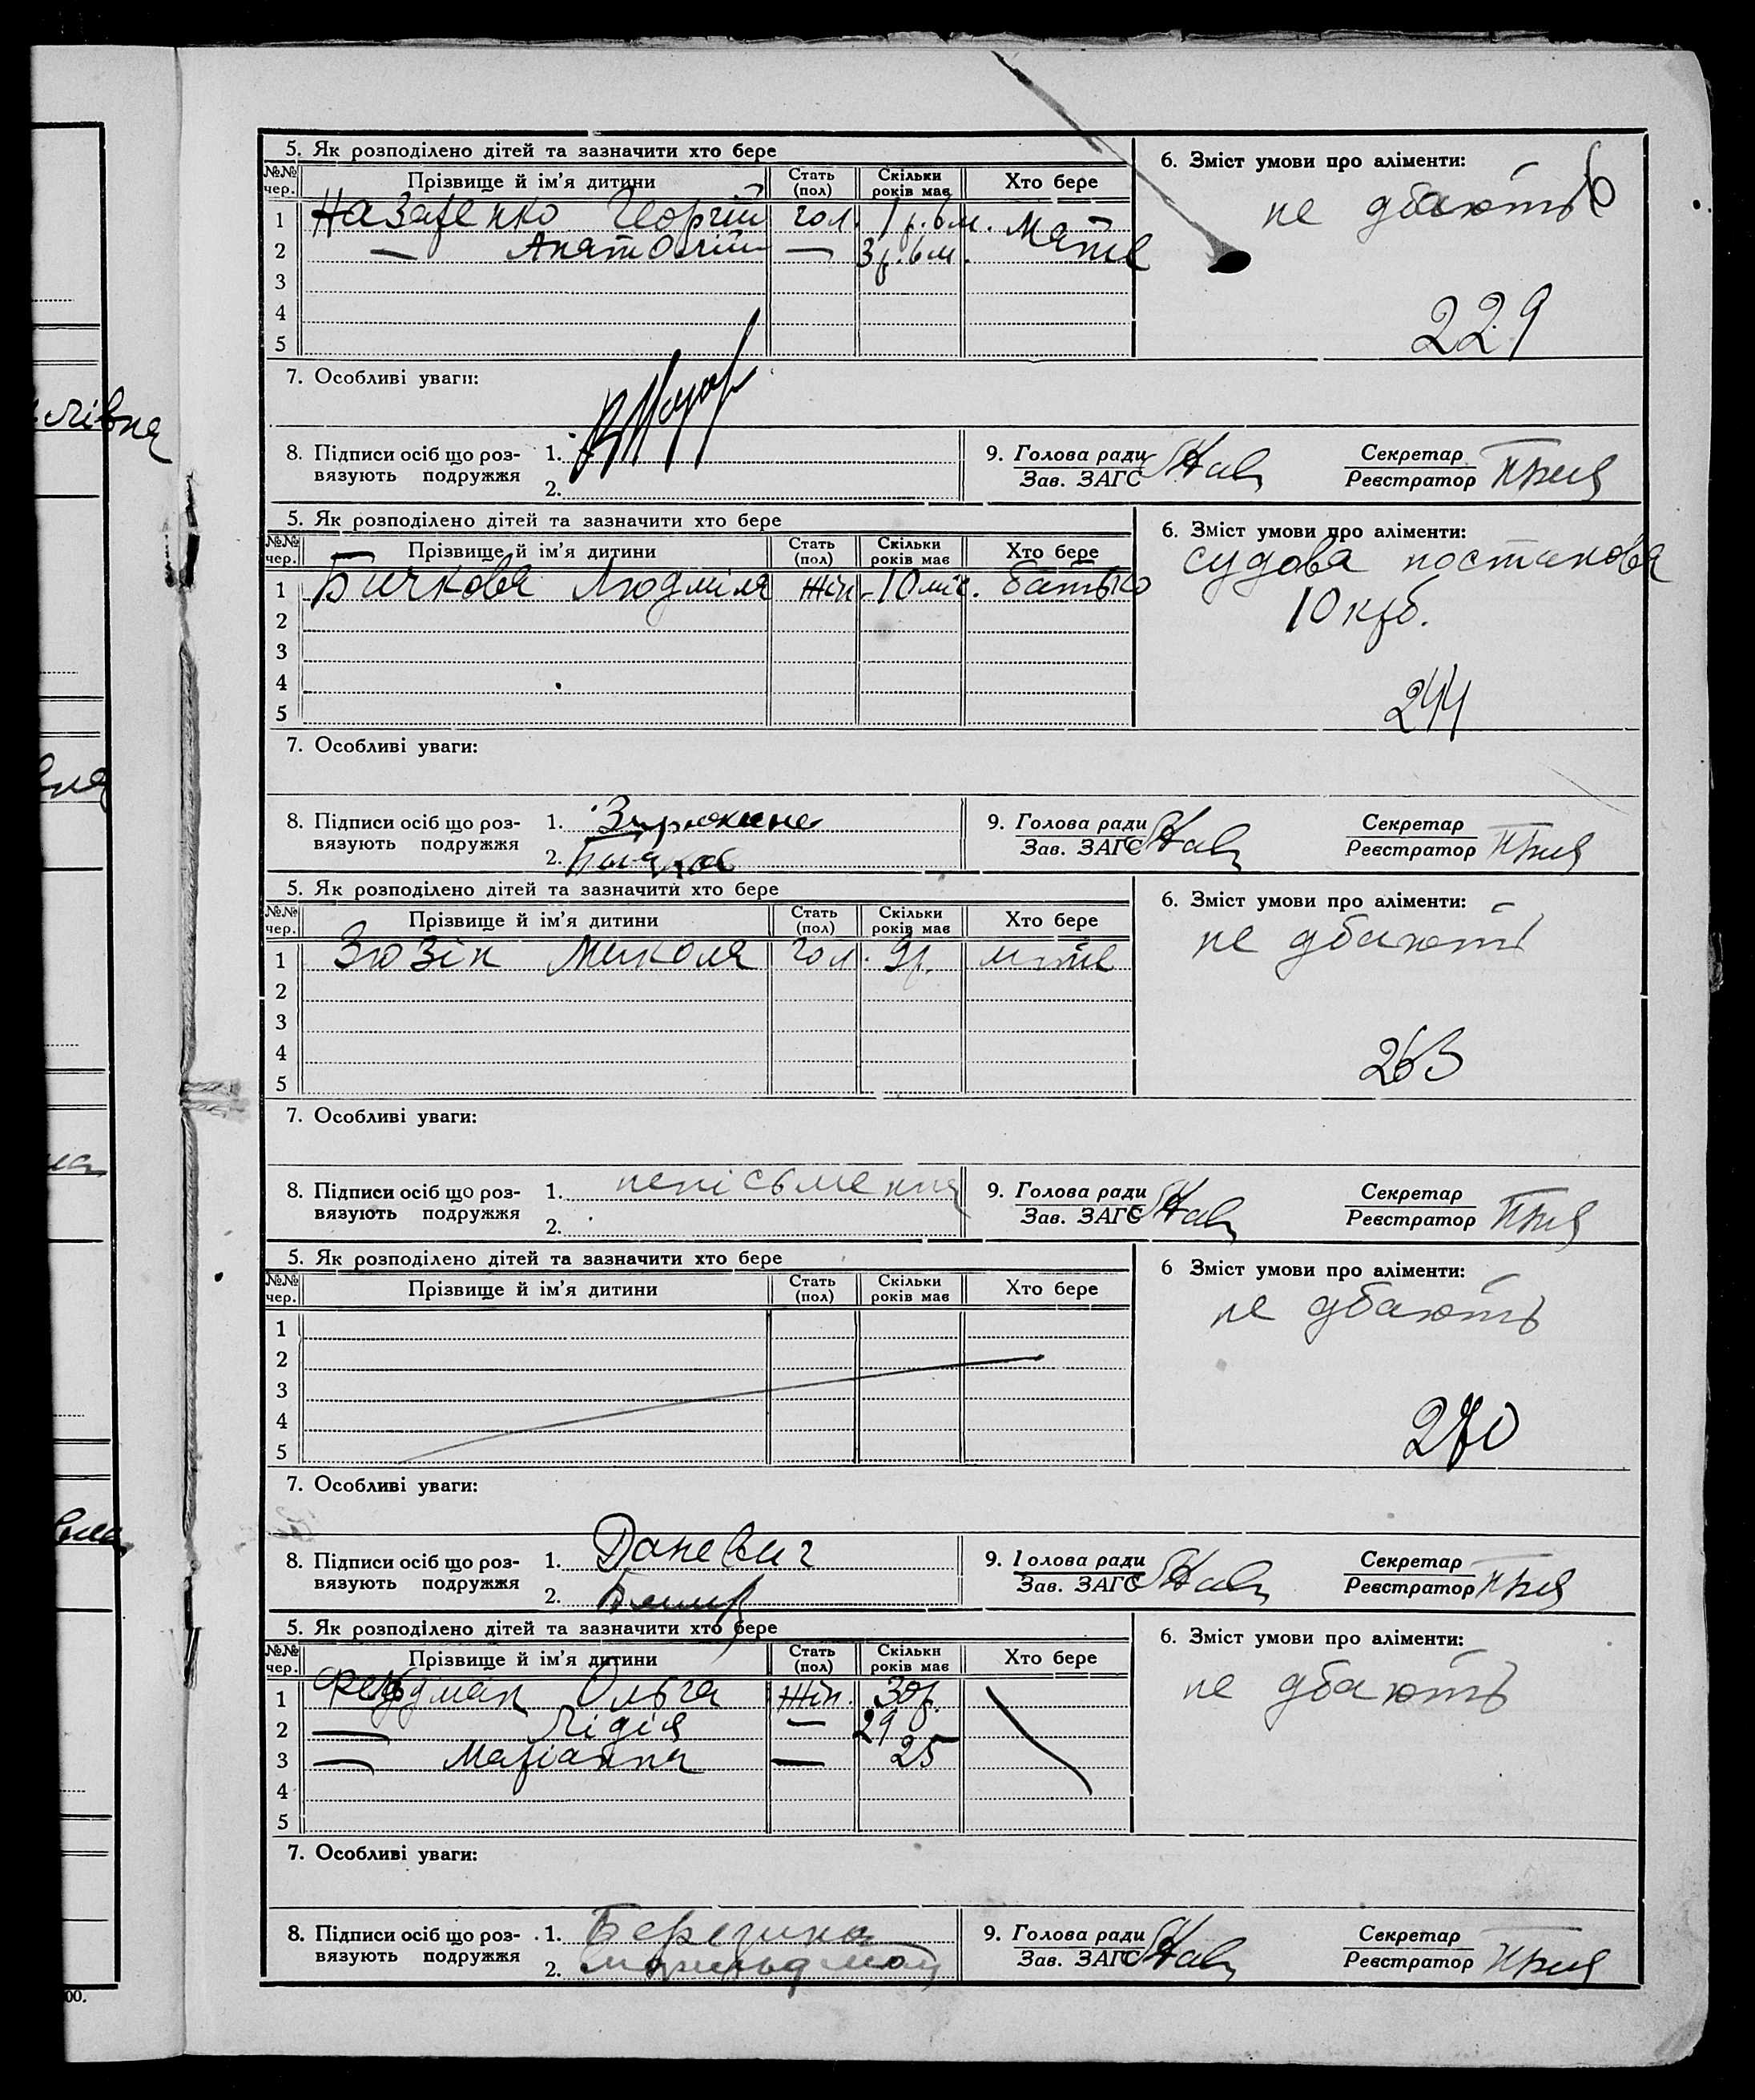 6
лівна
5. Як розподілено дітей та зазначити хто бере
6. Зміст умови про аліменти:
№№ чер. Прізвище й ім'я дитини Стать (пол) Скільки років має Хто бере
не дбають
1 Назаренко Георгій чол. 1 р. 6 м. Мате
2 — Анатолій — 3 р. 6 м.
3
4
5
229
7. Особливі уваги:
8. Підписи осіб що роз-вязують подружжя 1.
2.
9. Голова ради
Зав. ЗАГС
Секретар
Реєстратор
5. Як розподілено дітей та зазначити хто бере
6. Зміст умови про аліменти:
№№ чер. Прізвище й ім'я дитини Стать (пол) Скільки років має Хто бере
судова постанова
10 крб.
1 Бичкова Людміла жін. 10 міс. батько
2
3
4
5
244
7. Особливі уваги:
8. Підписи осіб що роз-вязують подружжя 1.
2.
9. Голова ради
Зав. ЗАГС
Секретар
Реєстратор
5. Як розподілено дітей та зазначити хто бере
6. Зміст умови про аліменти:
№№ чер. Прізвище й ім'я дитини Стать (пол) Скільки років має Хто бере
не дбають
1 Зюзін Микола чол. 9 р. мате
2
3
4
5
263
7. Особливі уваги:
8. Підписи осіб що роз-вязують подружжя 1. непісьменна
2.
9. Голова ради
Зав. ЗАГС
Секретар
Реєстратор
5. Як розподілено дітей та зазначити хто бере
6 Зміст умови про аліменти:
№№ чер. Прізвище й ім'я дитини Стать (пол) Скільки років має Хто бере
не дбають
1
2
3
4
5
270
7. Особливі уваги:
8. Підписи осіб що роз-вязують подружжя 1. Даневич
2.
9. Голова ради
Зав. ЗАГС
Секретар
Реєстратор
5. Як розподілено дітей та зазначити хто бере
6. Зміст умови про аліменти:
№№ чер. Прізвище й ім'я дитини Стать (пол) Скільки років має Хто бере
не дбають
1 Ольга жін. 30 р.
2 — Лідія — 29
3 — Маріанна — 25
4
5
7. Особливі уваги:
8. Підписи осіб що роз-вязують подружжя 1.
2.
9. Голова ради
Зав. ЗАГС
Секретар
Реєстратор
00.